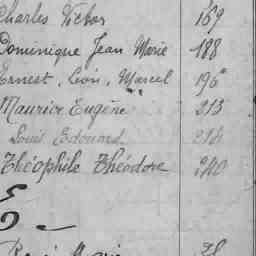 Charles Victor 169
Dominique Jean Marie 188
Ernest, Léon, Marcel 196
Maurice Eugène 213
Louis Edouard 218
Théophile Théodore 240
E